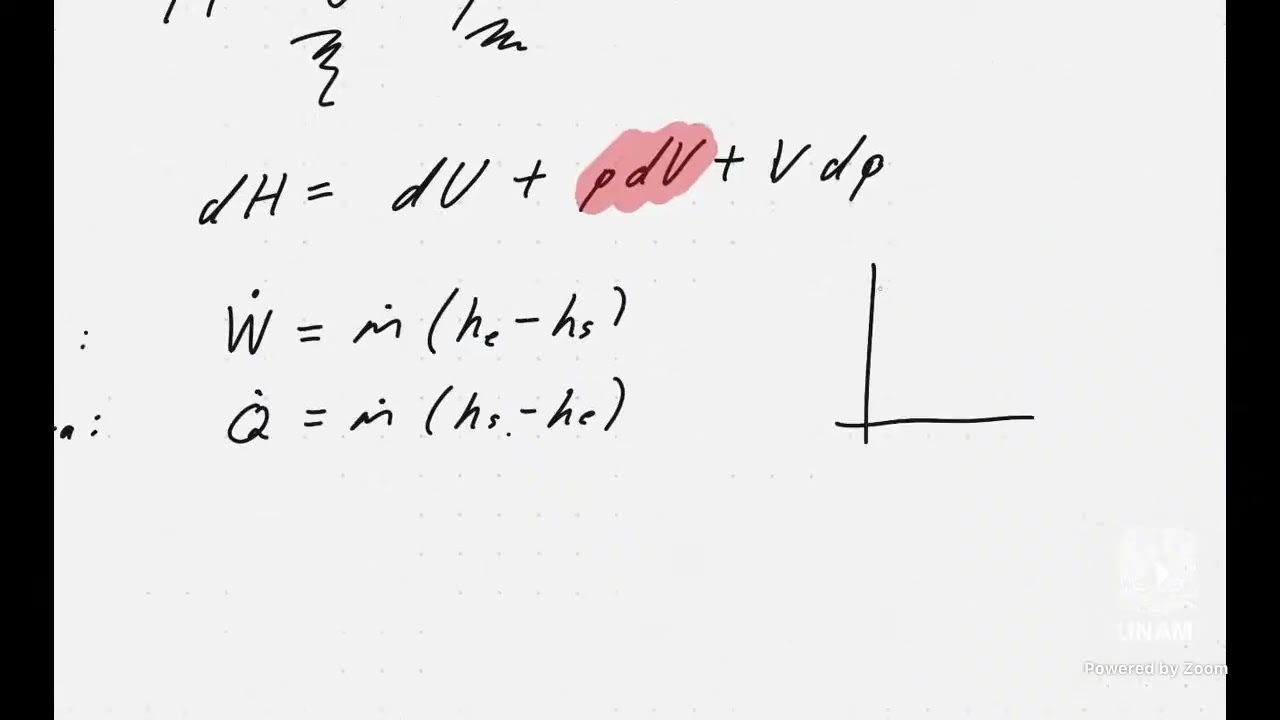 dH = dU + pdV + Vdp
:
Ẇ = ṁ (he - hs)
a :
Q̇ = ṁ (hs. - he)
UNAM
Powered by Zoom